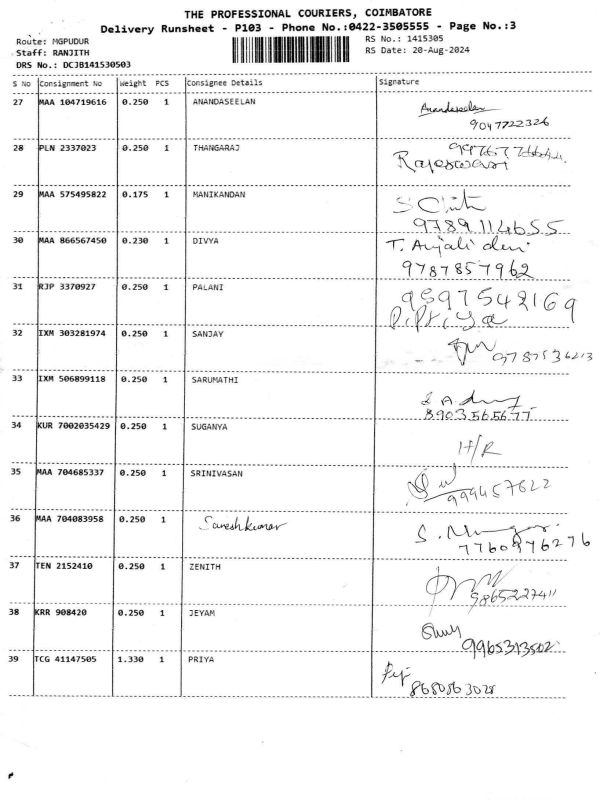 THE PROFESSIONAL COURIERS, COIMBATORE
Delivery Runsheet - P103 - Phone No.:0422-3505555 - Page No.:3
Route: MGPUDUR RS No.: 1415305
Staff: RANJITH RS Date: 20-Aug-2024
DRS No.: DCJB141530503
S No Consignment No Weight PCS Consignee Details Signature
27 MAA 104719616 0.250 1 ANANDASEELAN Anandaseelan
9047722326
28 PLN 2337023 0.250 1 THANGARAJ
Rajeswari
29 MAA 575495822 0.175 1 MANIKANDAN
9789114655
30 MAA 866567450 0.230 1 DIVYA T. Anjali devi
9787857962
31 RJP 3370927 0.250 1 PALANI 9597542169
32 IXM 303281974 0.250 1 SANJAY
9787536213
33 IXM 506899118 0.250 1 SARUMATHI
8903565677
34 KUR 7002035429 0.250 1 SUGANYA
35 MAA 704685337 0.250 1 SRINIVASAN
999457622
36 MAA 704083958 0.250 1 Sureshkumar
7760976276
37 TEN 2152410 0.250 1 ZENITH
9865227411
38 KRR 908420 0.250 1 JEYAM
9965313502
39 TCG 41147505 1.330 1 PRIYA
8680863028